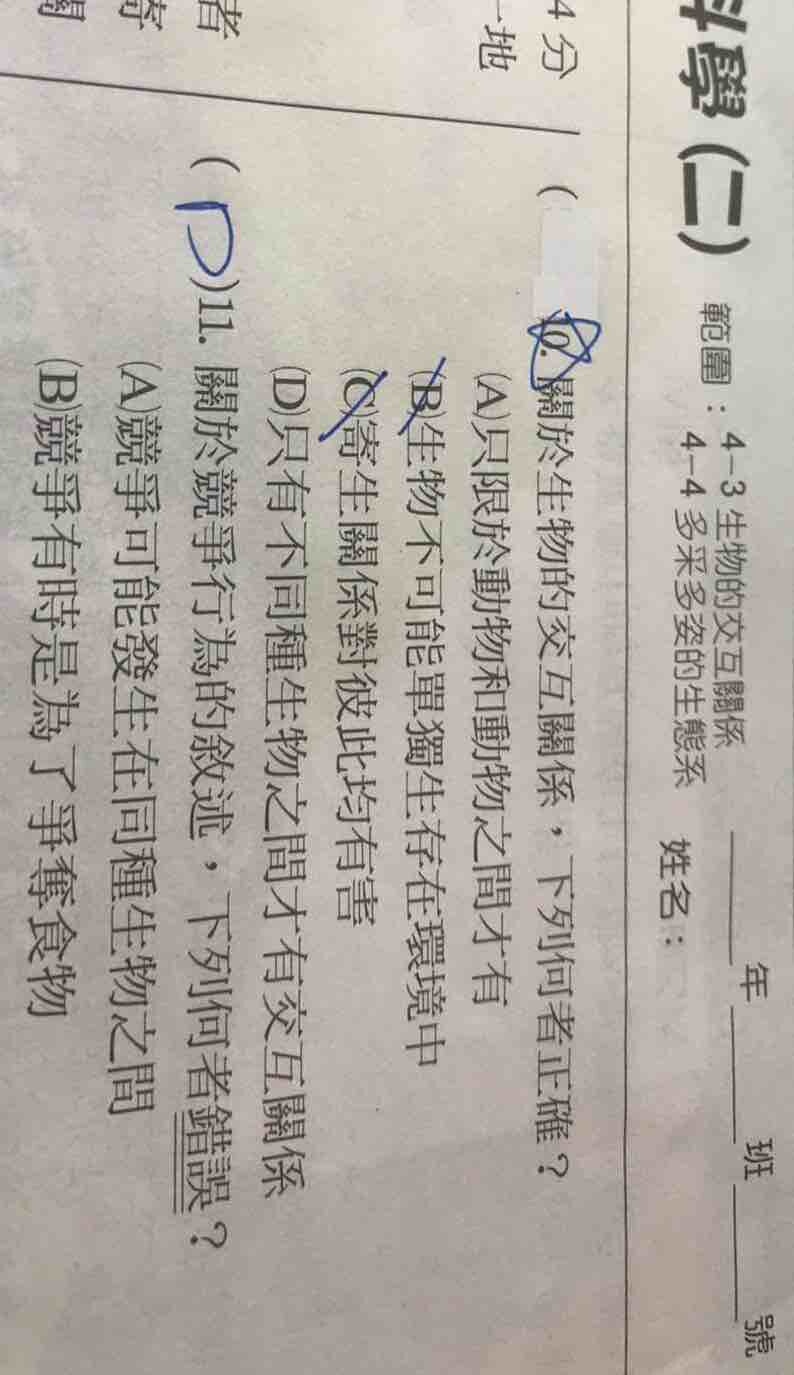 科學(二) 範圍：4-3 生物的交互關係
4-4 多采多姿的生態系
年 班 號
姓名：
4分
一地
者
寄
( )10. 關於生物的交互關係，下列何者正確？
(A)只限於動物和動物之間才有
(B)生物不可能單獨生存在環境中
(C)寄生關係對彼此均有害
(D)只有不同種生物之間才有交互關係
(D)11. 關於競爭行為的敘述，下列何者錯誤？
(A)競爭可能發生在同種生物之間
(B)競爭有時是為了爭奪食物